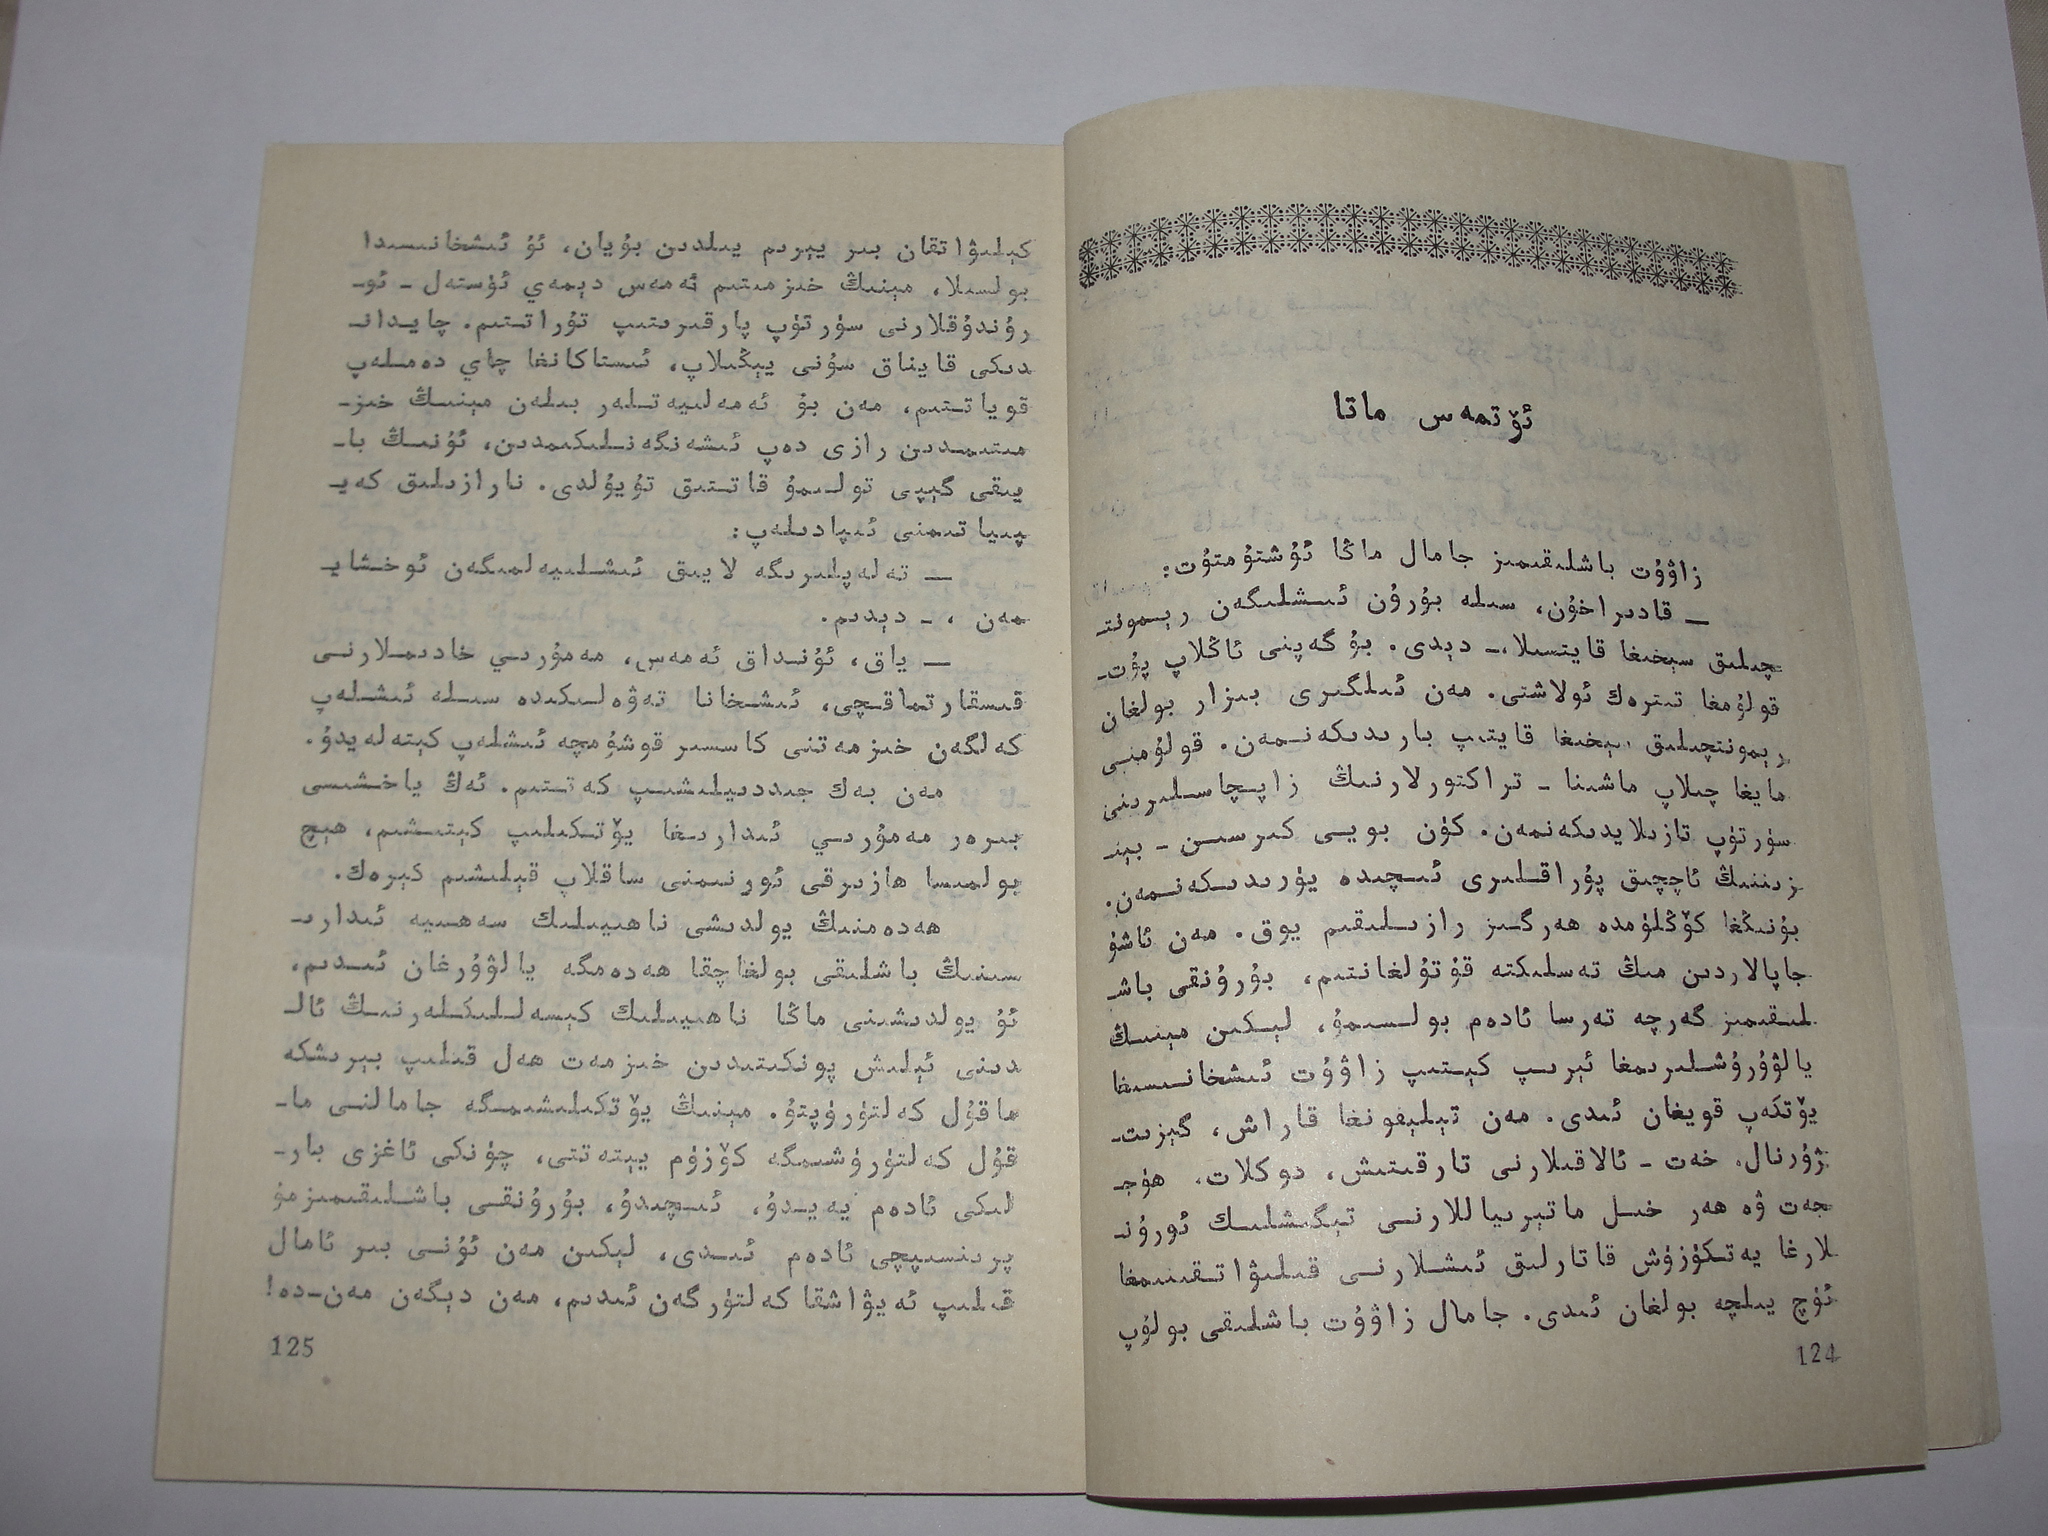 ئۆتمەس ماتا
زاۋۇت باشلىقىمىز جامال ماڭا ئۇشتۇمتۇت:
— قادىراخۇن، سىلە بۇرۇن ئىشلىگەن رېمونت-
چىلىق سېخىغا قايتسىلا،- دېدى. بۇ گەپنى ئاڭلاپ پۇت-
قولۇمغا تىترەك ئولاشتى. مەن ئىلگىرى بىزار بولغان
رېمونتچىلىق سېخىغا قايتىپ بارىدىكەنمەن. قولۇمنى
مايغا چىلاپ ماشىنا - تراكتورلارنىڭ زاپچاسلىرىنى
سۈرتۈپ تازىلايدىكەنمەن. كۈن بويى كىرسىن - بېن-
زىننىڭ ئاچچىق پۇراقلىرى ئىچىدە يۈرىدىكەنمەن.
بۇنىڭغا كۆڭلۈمدە ھەرگىز رازىلىقىم يوق. مەن ئاشۇ
جاپالاردىن مىڭ تەسلىكتە قۇتۇلغانتىم، بۇرۇنقى باش-
لىقىمىز گەرچە تەرسا ئادەم بولسىمۇ، لېكىن مېنىڭ
يالۋۇرۇشلىرىمغا ئېرىپ كېتىپ زاۋۇت ئىشخانىسىغا
يۆتكەپ قويغان ئىدى. مەن تېلېفونغا قاراش، گېزىت-
ژۇرنال، خەت - ئالاقىلارنى تارقىتىش، دوكلات، ھۈج-
جەت ۋە ھەر خىل ماتېرىياللارنى تېگىشلىك ئورۇن-
لارغا يەتكۈزۈش قاتارلىق ئىشلارنى قىلىۋاتقىنىمغا
ئۈچ يىلچە بولغان ئىدى. جامال زاۋۇت باشلىقى بولۇپ
124
كېلىۋاتقان بىر يېرىم يىلدىن بۇيان، ئۇ ئىشخانىسىدا
بولسىلا، مېنىڭ خىزمىتىم ئەمەس دېمەي ئۈستەل - ئو-
رۇندۇقلارنى سۈرتۈپ پارقىرىتىپ تۇراتتىم. چايدان-
دىكى قايناق سۇنى يېڭىلاپ، ئىستاكانغا چاي دەملەپ
قوياتتىم، مەن بۇ ئەمەلىيەتلەر بىلەن مېنىڭ خىز-
مىتىمدىن رازى دەپ ئىشەنگەنلىكىمدىن، ئۇنىڭ با-
يىقى گېپى تولىمۇ قاتتىق تۇيۇلدى. نارازىلىق كەي-
پىياتىمنى ئىپادىلەپ:
— تەلەپلىرىگە لايىق ئىشلىيەلمىگەن ئوخشاي-
مەن ، - دېدىم.
— ياق، ئۇنداق ئەمەس، مەمۇرىي خادىملارنى
قىسقارتماقچى، ئىشخانا تەۋەلىكىدە سىلە ئىشلەپ
كەلگەن خىزمەتنى كاسسىر قوشۇمچە ئىشلەپ كېتەلەيدۇ.
مەن بەك جىددىيلىشىپ كەتتىم. ئەڭ ياخشىسى
بىرەر مەمۇرىي ئىدارىغا يۆتكىلىپ كېتىشىم، ھېچ
بولمىسا ھازىرقى ئورنىمنى ساقلاپ قېلىشىم كېرەك.
ھەدەمنىڭ يولدىشى ناھىيىلىك سەھىيە ئىدارى-
سىنىڭ باشلىقى بولغاچقا ھەدەمگە يالۋۇرغان ئىدىم،
ئۇ يولدىشىنى ماڭا ناھىيىلىك كېسەللىكلەرنىڭ ئال-
دىنى ئېلىش پونكىتىدىن خىزمەت ھەل قىلىپ بېرىشكە
ماقۇل كەلتۈرۈپتۇ. مېنىڭ يۆتكىلىشىمگە جامالنى ما-
قۇل كەلتۈرۈشىمگە كۆزۈم يېتەتتى، چۈنكى ئاغزى بار-
لىكى ئادەم يەيدۇ، ئىچىدۇ، بۇرۇنقى باشلىقىمىزمۇ
پرىنسىپچى ئادەم ئىدى، لېكىن مەن ئۇنى بىر ئامال
قىلىپ ئەيۋاشقا كەلتۈرگەن ئىدىم، مەن دېگەن مەن-دە!
125